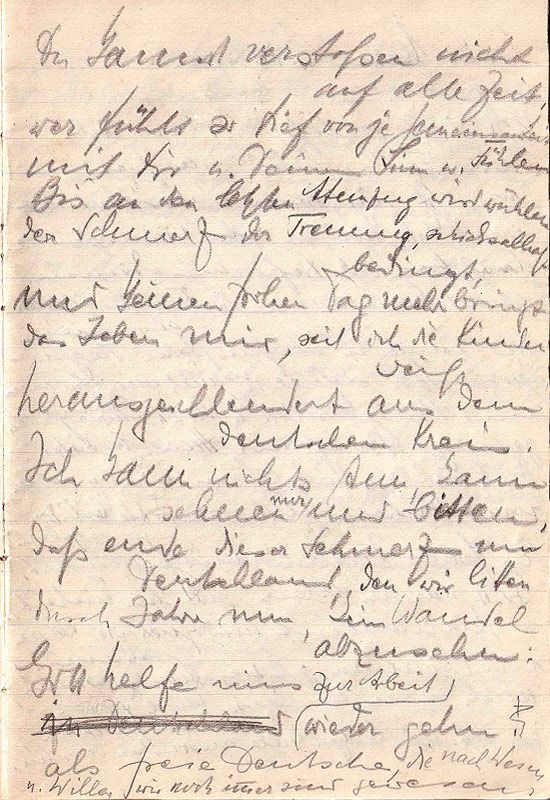 Du kannst verstoßen nicht
auf alle Zeit,
wer fühlt so tief von je Gemeinsamkeit
mit Dir u. Deinem Sinn u. Fühlen
Bis an den letzten Atemzug wird wühlen
der Schmerz der Trennung, schicksalhaft
bedingt,
und keinen frohen Tag mehr bringt
das Leben mir, seit ich die Kinder
weiß
herausgeschleudert aus dem
deutschen Kreis.
Ich kann nichts tun, kann
sehnen nur und bitten,
daß ende dieser Schmerz um
Deutschland, den wir litten
durch Jahre nun, kein Wandel
abzusehn:
Gott helfe uns zur Arbeit
in Deutschland wieder gehn
als freie Deutsche, die nach Wesen
u. Willen wir noch immer sind gewesen.